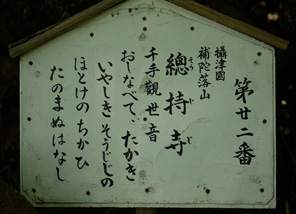 第廿二番
攝津國
補陀落山
總持寺
そうじじ
千手觀世音
おしなべて、たかき
いやしきそうじじの
ほとけのちかひ
たのまぬはなし